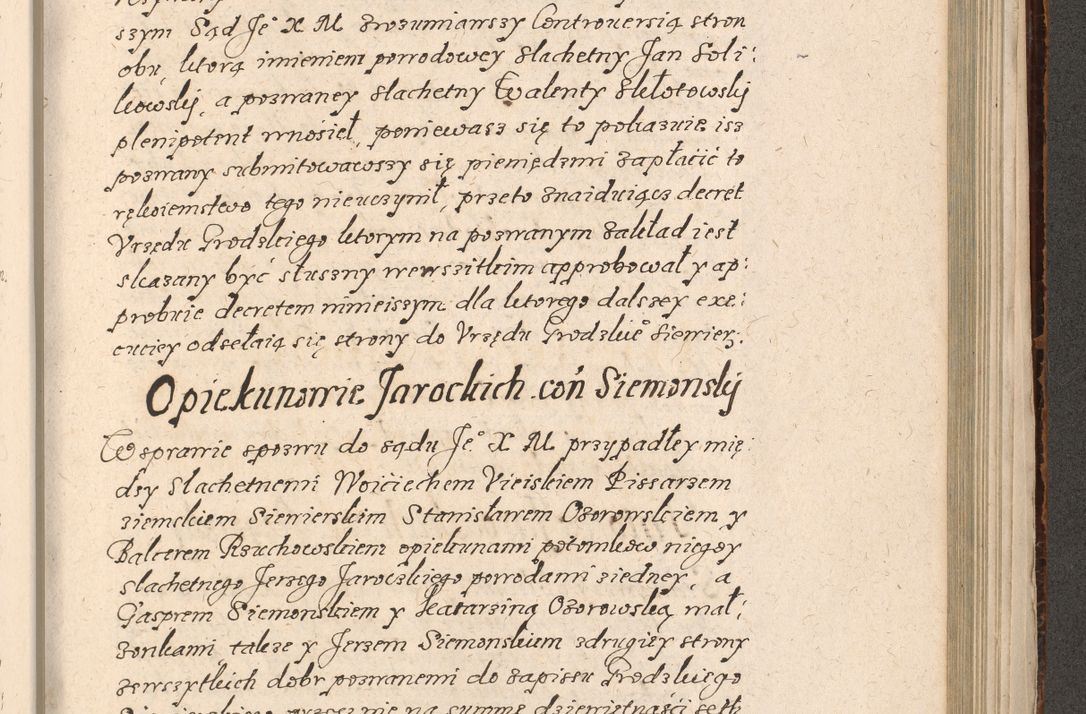 szym Sąd Je° X M zrozumiawszy Controversią stron
obu, ktorą imieniem powodowey slachetny Jan Soli:
kowskÿ, a poznaney slachetny Walenty Skłotowskÿ
plenipotent wnosieł, poniewasz się to pokazuie isz
pozwany submitowawszy się pieniędzmi zapłacić to
rękoiemstwo tego nieuczynił, przeto znaiduiącz decret
Vrzędu Grodzkiego ktorym na pozwanym zakład iest
skazany być słuszny wewszitkim approbował y ap:
probuie decretem ninieiszym dla ktorego dalszey exe:
cuciey odsełaią się strony do Vrzędu Grodzkie° Siewier:
Opiekunowie Jarockich con̄ Siemonskÿ
W sprawie spozwu do sądu Je° X M przypadłey mię:
dsy Slachetnemi Woiciechem Vieiskiem Pissarzem
ziemskiem Siewierskim Stanisławem Ozorowskiem y
Balcerem Rzuchowskiem opiekunami potomkow niegdy
slachetnego Jerzego Jaroczkiego powodami ziedney, a
Gasprem Siemonskiem y Katarziną Ozorowską mał:
zonkami, takze y Jerzem Siemonskiem zdrugiey strony
zewszytkich dobr pozwanemi do zapisu Grodzkiego